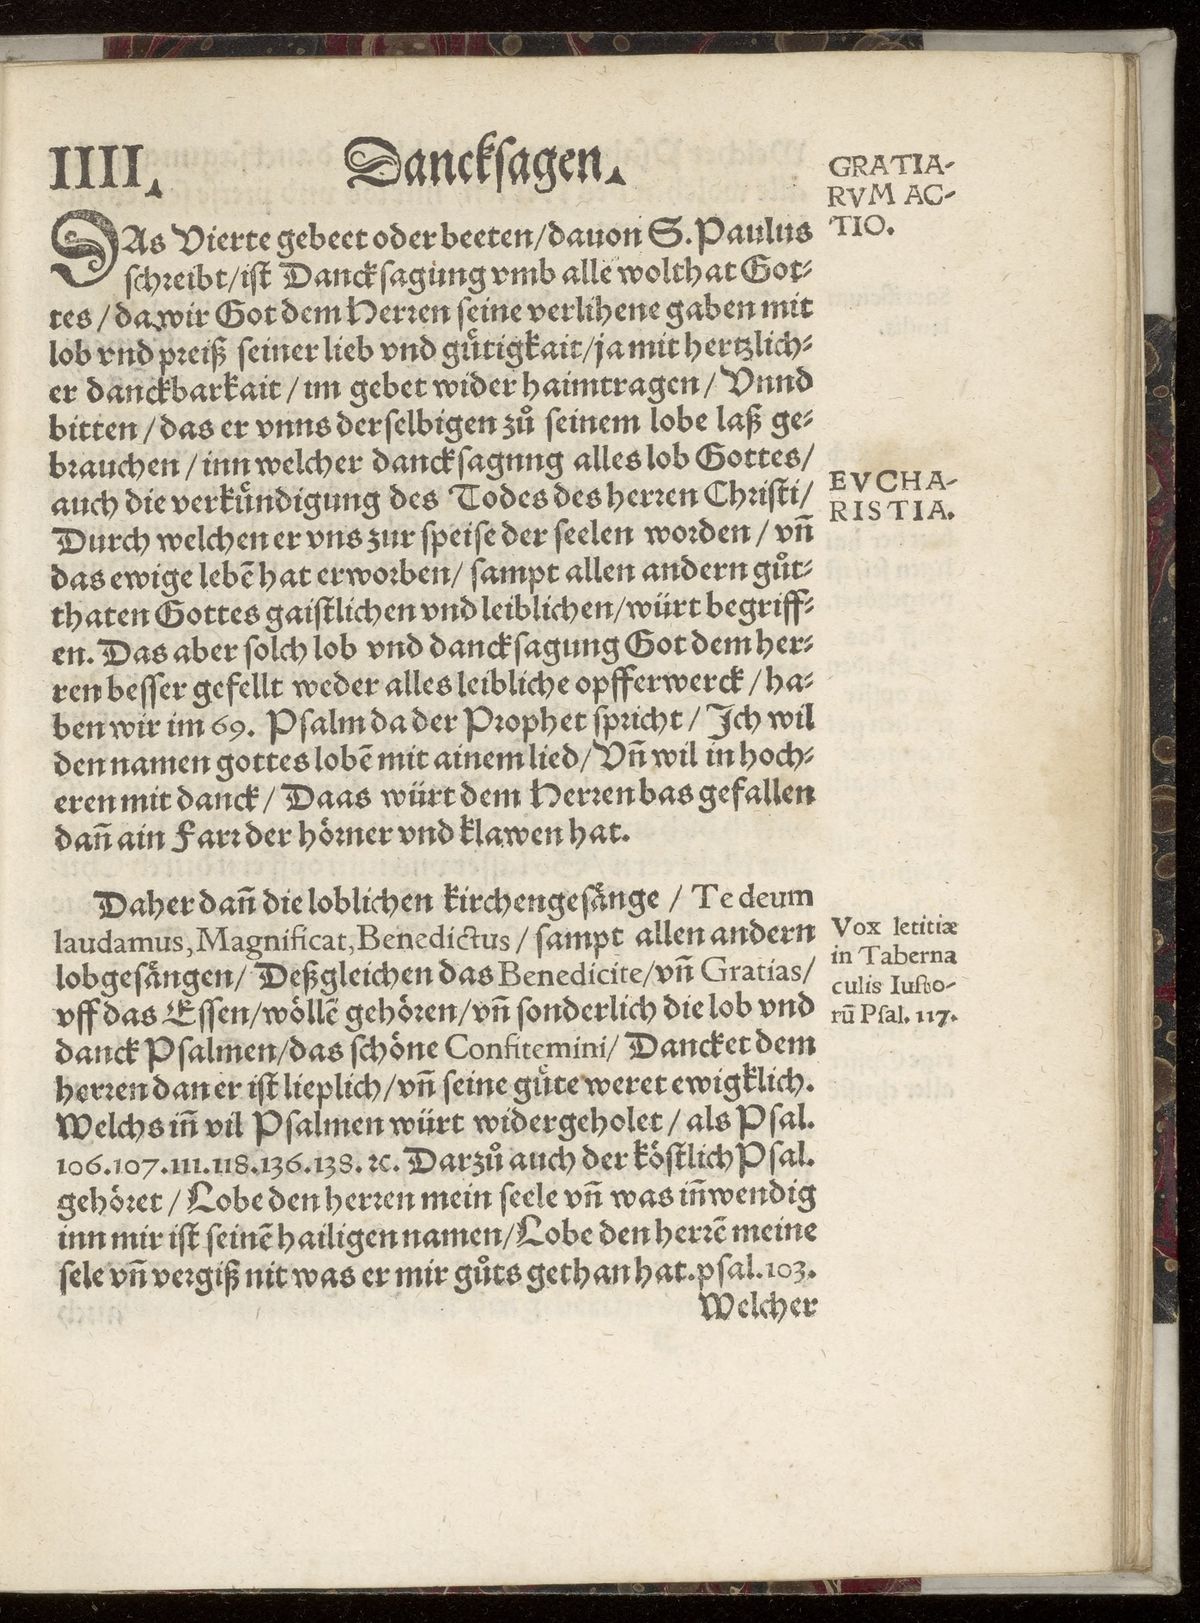 IIII. Dancksagen.
GRATIA-
RVM AC-
TIO.
DAs Vierte gebeet oder beeten/dauon S. Paulus
schreibt/ist Dancksagung vmb alle wolthat Got-
tes/da wir Got dem Herren seine verlihene gaben mit
lob vnd preiß seiner lieb vnd guͤtigkait/ja mit hertzlich-
er danckbarkait/im gebet wider haimtragen/Vnnd
bitten/das er vnns derselbigen zuͦ seinem lobe laß ge-
brauchen/inn welcher dancksagnng alles lob Gottes/
auch die verkuͤndigung des Todes des herren Christi/
EVCHA-
RISTIA.
Durch welchen er vns zur speise der seelen worden/vñ
das ewige lebẽ hat erworben/sampt allen andern guͦt-
thaten Gottes gaistlichen vnd leiblichen/würt begriff-
en. Das aber solch lob vnd dancksagung Got dem her-
ren besser gefellt weder alles leibliche opfferwerck/ha-
ben wir im 69. Psalm da der Prophet spricht/Ich wil
den namen gottes lobẽ mit ainem lied/Vñ wil in hoch-
eren mit danck/Daas würt dem Herren bas gefallen
dañ ain Farr der hoͤrner vnd klawen hat.
Daher dañ die loblichen kirchengesaͤnge/Te deum
laudamus, Magnificat, Benedictus/sampt allen andern
lobgesaͤngen/Deßgleichen das Benedicite/vñ Gratias/
vff das Essen/woͤllẽ gehoͤren/vñ sonderlich die lob vnd
danck Psalmen/das schoͤne Confitemini/Dancket dem
herren dan er ist lieplich/vñ seine guͤte weret ewigklich.
Vox letitiæ
in Taberna
culis Iusto-
rũ Psal. 117.
Welchs iñ vil Psalmen würt widergeholet/als Psal.
106.107.111.118.136.138.ꝛc. Darzuͦ auch der koͤstlich Psal.
gehoͤret/Lobe den herren mein seele vñ was iñwendig
inn mir ist seinẽ hailigen namen/Lobe den herrẽ meine
sele vñ vergiß nit was er mir guͦts gethan hat. psal. 103.
Welcher